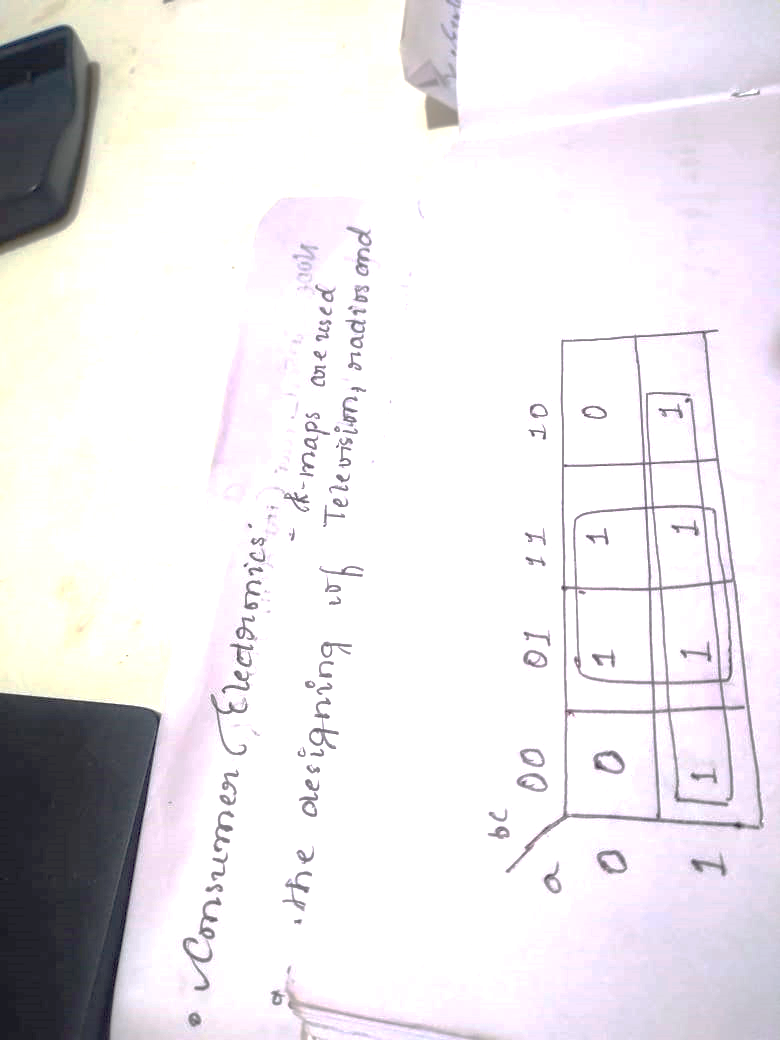 • Consumer Electronics:
- K-maps are used
the designing of Television, radios and
bc
a
00 01 11 10
0 0 1 1 0
1 1 1 1 1